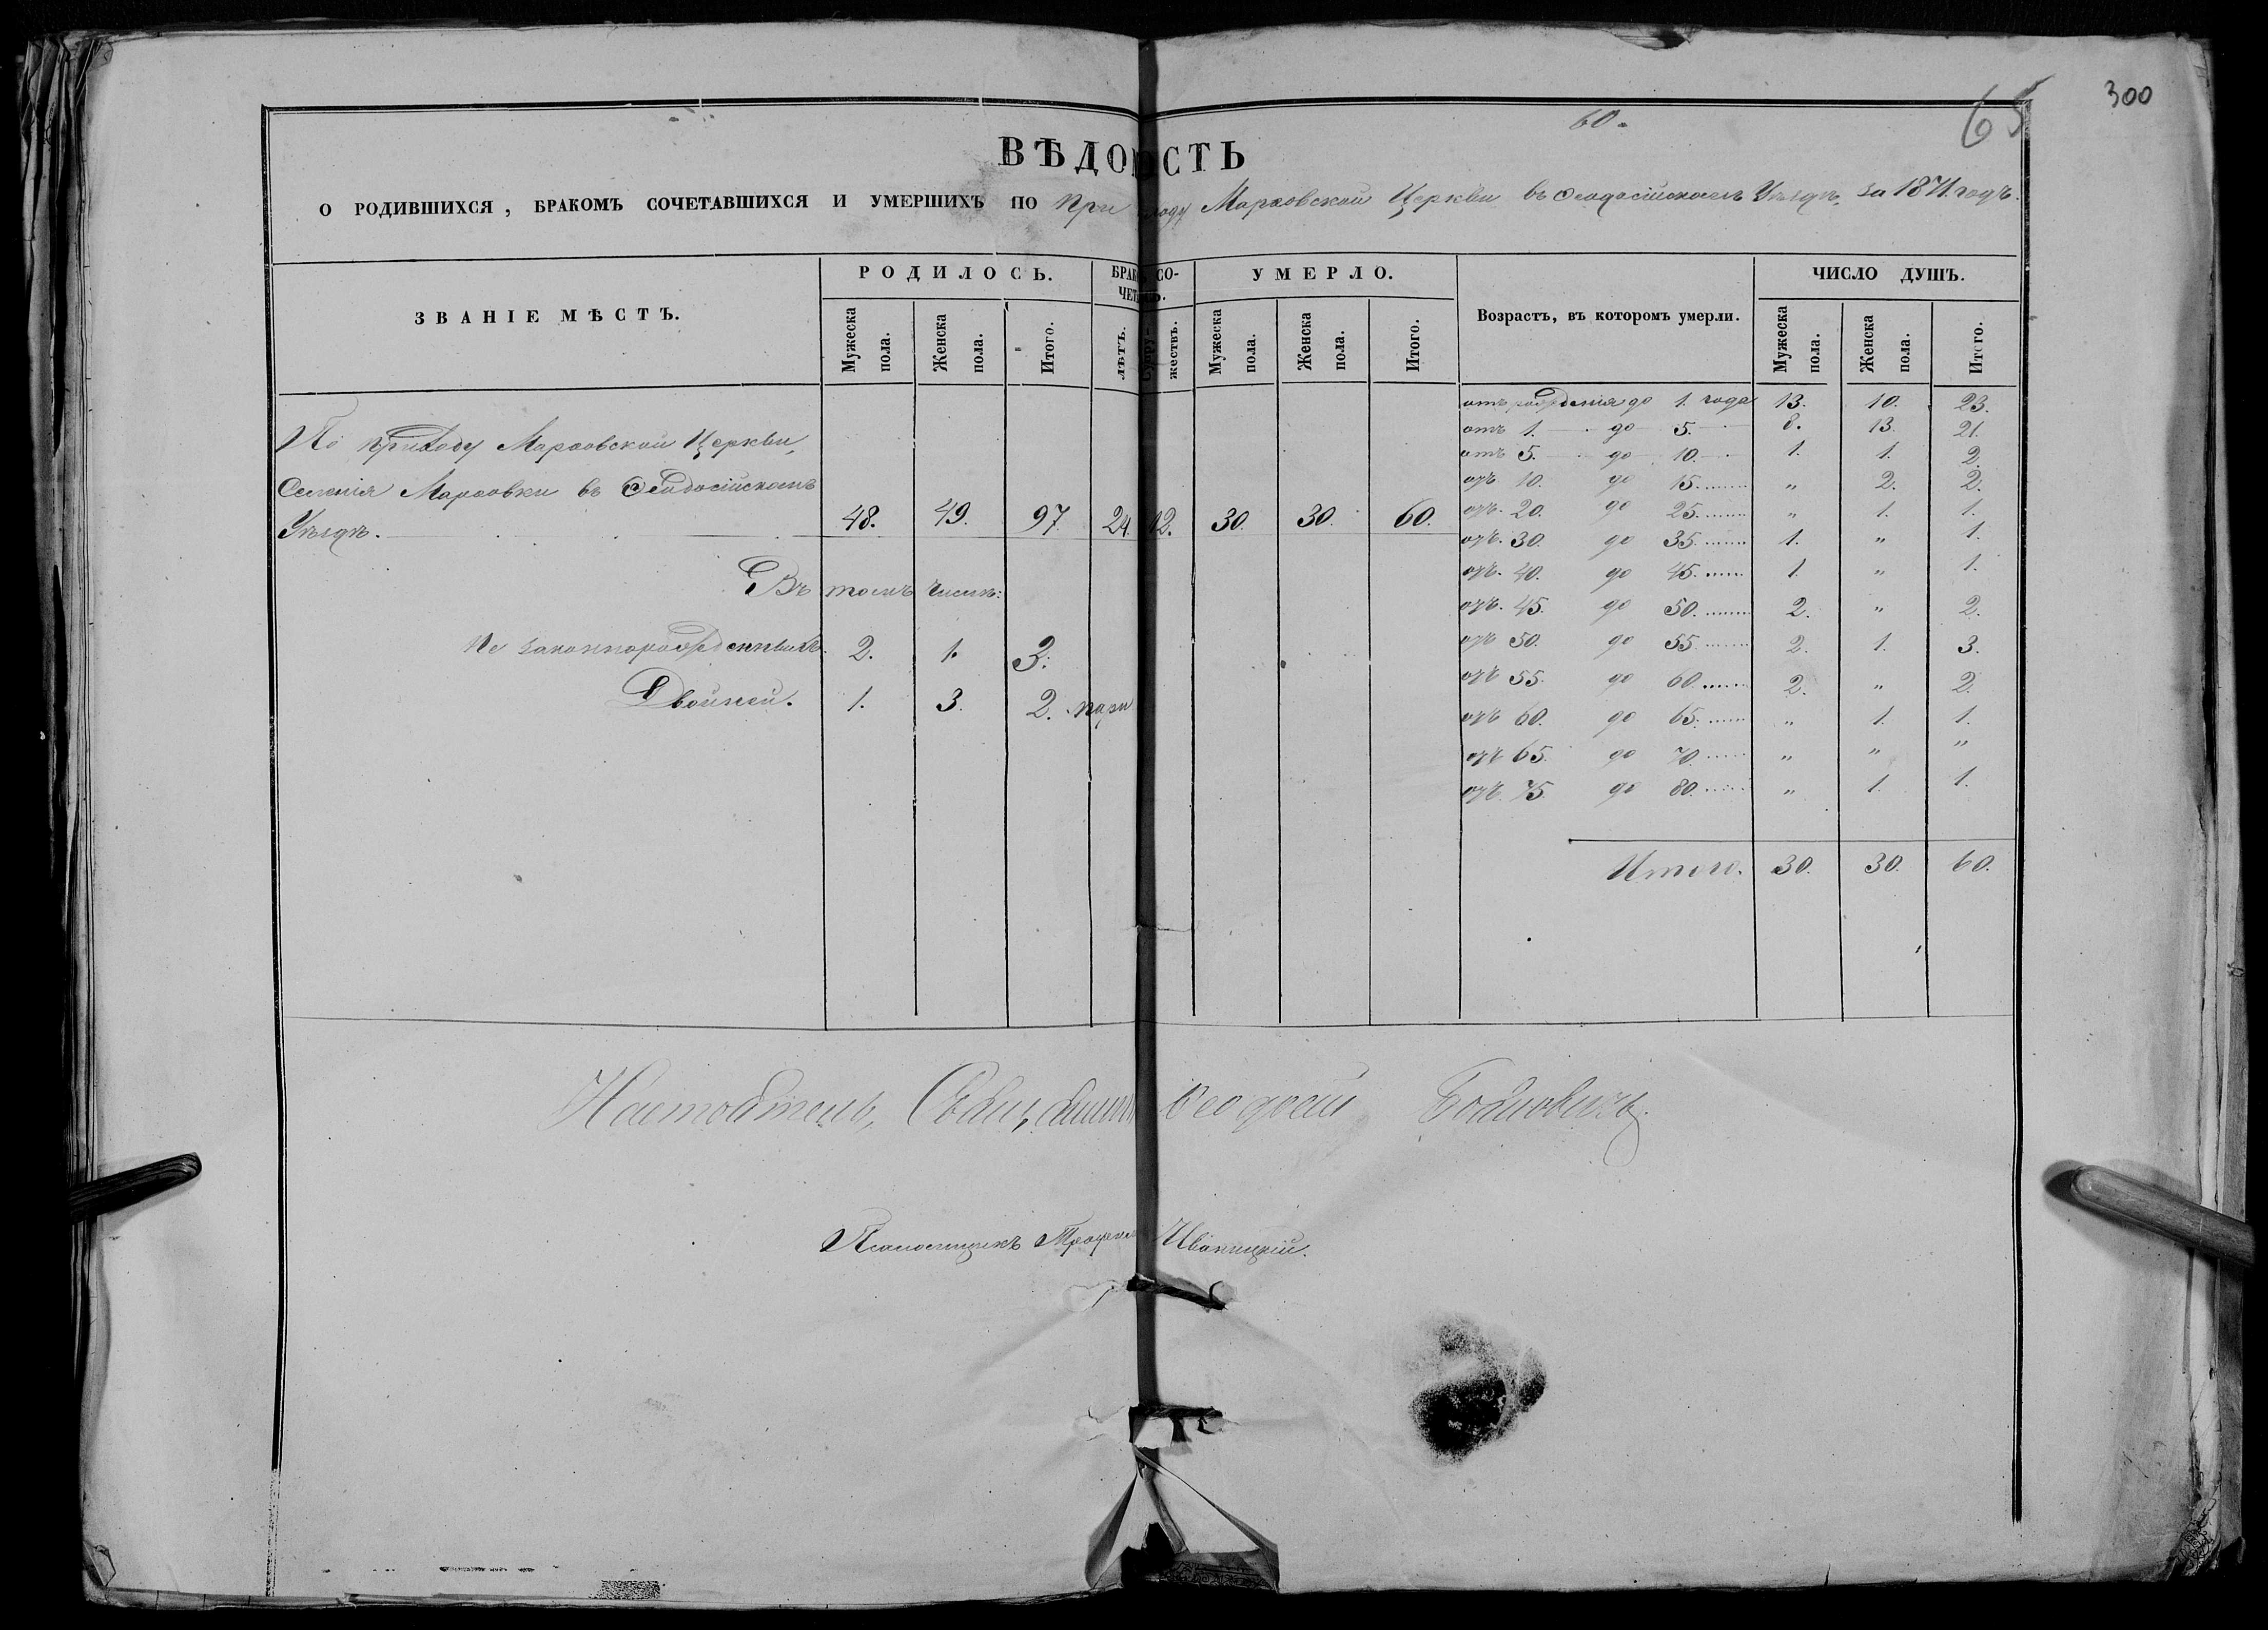 300
65
60.
ВѢДОМОСТЬ
О РОДИВШИХСЯ, БРАКОМЪ СОЧЕТАВШИХСЯ И УМЕРШИХЪ ПО приходу Марѳовской Церкви въ Ѳеодосійскомъ Уѣздѣ, за 1871. годъ.
ЗВАНІЕ МѢСТЪ.
РОДИЛОСЬ.
Мужеска пола.
Женска пола.
Итого.
БРАКОМЪ СО-
ЧЕТАЛОСЬ.
лѣтъ.
Супру-
жествъ.
УМЕРЛО.
Мужеска пола.
Женска пола.
Итого.
Возрастъ, въ которомъ умерли.
ЧИСЛО ДУШЪ.
Мужеска пола.
Женска пола.
Итого.
По приходу Марѳовской Церкви,
Селенія Марѳовки въ Ѳеодосійскомъ
Уѣздѣ. 48. 49. 97 24. 12. 30. 30. 60.
Въ томъ числѣ:
Не законнорожденныхъ. 2. 1. 3.
Двойней. 1. 3. 2. пары
отъ рожденія до 1. года 13. 10. 23.
отъ 1. до 5. 8. 13. 21.
отъ 5. до 10. 1. 1. 2.
отъ 10. до 15. " 2. 2.
отъ 20. до 25. " 1. 1.
отъ 30. до 35. 1. " 1.
отъ 40. до 45. 1. " 1.
отъ 45. до 50. 2. " 2.
отъ 50. до 55. 2. 1. 3.
отъ 55. до 60. 2. " 2.
отъ 60. до 65. " 1. 1.
отъ 65. до 70. " " "
отъ 75. до 80. " 1. 1.
Итого. 30. 30. 60.
Настоятель, Священникъ Ѳеодосій
Псаломщикъ Иваницкій.